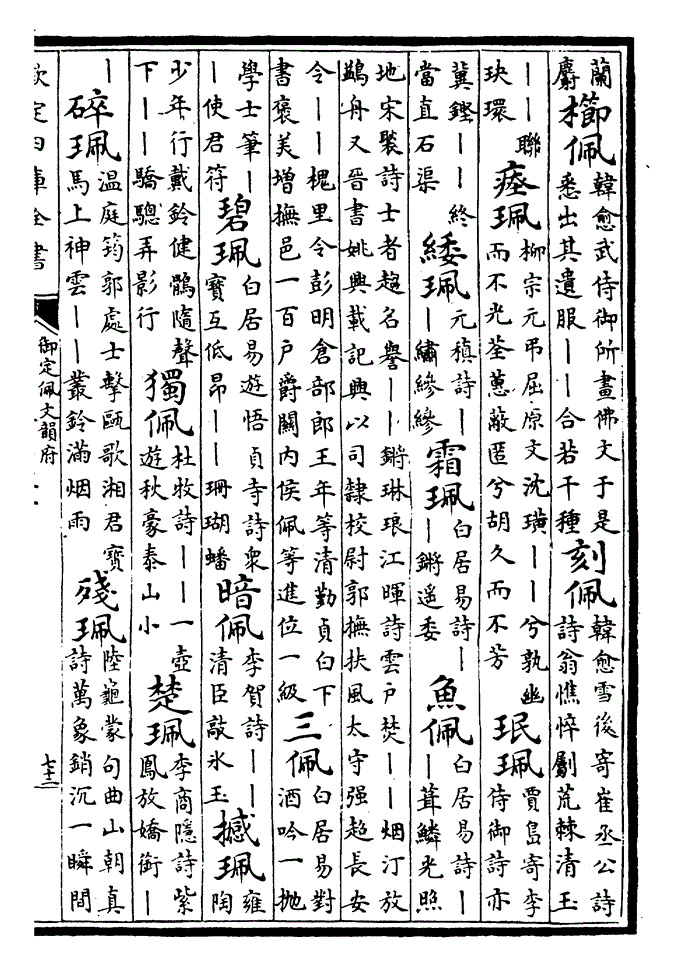 蘭
麝
櫛佩
韓愈武侍御所畫佛文于是
悉出其遺服丨丨合若干種
刻佩
韓愈雪後寄崔丞公詩
詩翁憔悴劚荒棘清玉
丨丨聯
玦環
瘞珮
柳宗元弔屈原文沈璜丨丨兮孰幽
而不光荃蕙蔽匿兮胡久而不芳
珉珮
賈島寄李
侍御詩亦
冀鏗丨丨終
當直石渠
緌珮
元稹詩丨
丨繡縿縿
霜珮
白居易詩丨
丨鏘遥委
魚佩
白居易詩丨
丨葺鱗光照
地宋褧詩士者趨名譽丨丨鏘琳琅江暉詩雲户焚丨丨烟汀放
鷁舟又晉書姚興載記興以司隷校尉郭撫扶風太守强超長安
令丨丨槐里令彭明倉部郎王年等清勤貞白下
書褒美增撫邑一百户爵關内侯佩等進位一級
三佩
白居易對
酒吟一抛
學士筆丨
丨使君符
碧珮
白居易遊悟貞寺詩衆
寶互低昂丨丨珊瑚幡
暗佩
李賀詩丨丨
清臣敲氷玉
撼珮
雍
陶
少年行戴鈴健鶻隨聲
下丨丨驕驄弄影行
獨佩
杜牧詩丨丨一壺
遊秋毫泰山小
楚珮
李商隱詩紫
鳳放嬌銜丨
丨
碎珮
温庭筠郭處士擊甌歌湘君寶
馬上神雲丨丨叢鈴滿烟雨
殘珮
陸龜蒙句曲山朝真
詩萬象銷沉一瞬間
欽定四庫全書
御定佩文韻府